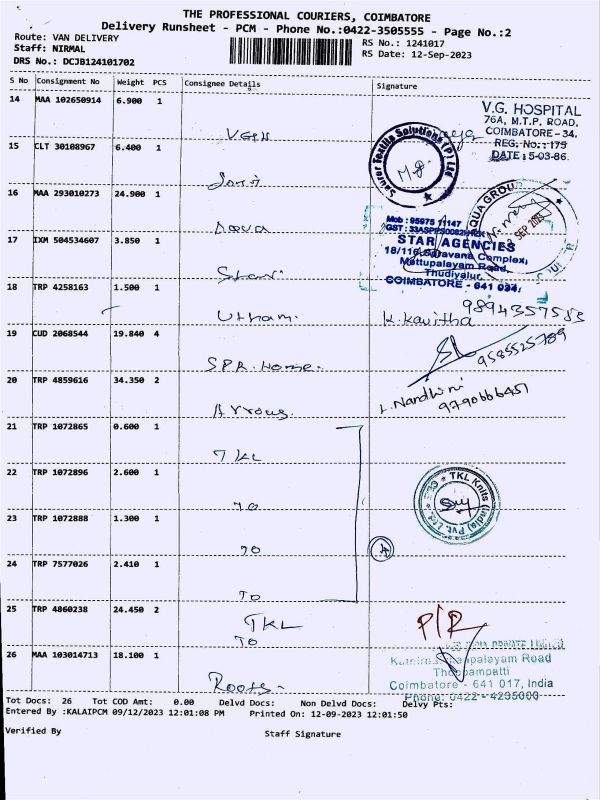 THE PROFESSIONAL COURIERS, COIMBATORE
Delivery Runsheet - PCM - Phone No.:0422-3505555 - Page No.:2
Route: VAN DELIVERY
Staff: NIRMAL
DRS No.: DCJB124101702
RS No.: 1241017
RS Date: 12-Sep-2023
S No Consignment No Weight PCS Consignee Details Signature
14 MAA 102650914 6.900 1
V.G. HOSPITAL
76A, M.T.P. ROAD,
COIMBATORE-34.
REG. No.: 175
DATE: 5-03-86.
VGH
15 CLT 30108967 6.400 1
Saurer Textile Solutions (P) Ltd
16 MAA 293010273 24.900 1
AQUA GROUP
SEP 2023
Aqua
Mob : 95975 11147
STAR AGENCIES
18/116, Saravana Complex,
Mettupalayam Road,
Thudiyalur,
COIMBATORE - 641 034.
17 IXM 504534607 3.850 1
Star
18 TRP 4258163 1.500 1
Utham.
K. Kavitha
9894357583
19 CUD 2068544 19.840 4
SPR. Home.
9585525789
20 TRP 4859616 34.350 2
Arrows
L. Nandhini
9790666451
21 TRP 1072865 0.600 1
TKL
22 TRP 1072896 2.600 1
TO
TKL Knits (India) Pvt. Ltd.
23 TRP 1072888 1.300 1
TO
4
24 TRP 7577026 2.410 1
TO
25 TRP 4860238 24.450 2
TKL
TO
P/R
26 MAA 103014713 18.100 1
INDIA PRIVATE LIMITED
Kanalpalayam Road
Thoppampatti
Coimbatore - 641 017, India
Phone: 0422 - 4235000
Roots
Tot Docs: 26 Tot COD Amt: 0.00 Delvd Docs: Non Delvd Docs: Delvy Pts:
Entered By :KALAIPCM 09/12/2023 12:01:08 PM Printed On: 12-09-2023 12:01:50
Verified By Staff Signature